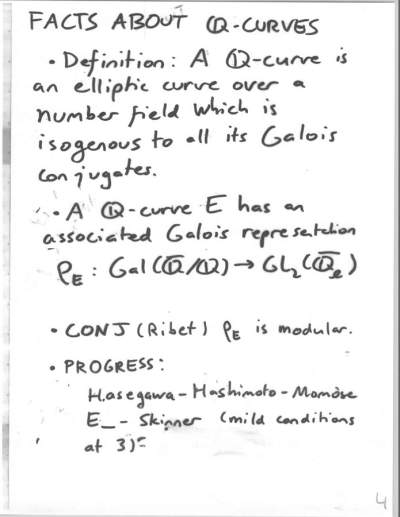 FACTS ABOUT Q-CURVES
• Definition: A Q-curve is
an elliptic curve over a
number field which is
isogenous to all its Galois
conjugates.
• A Q-curve E has an
associated Galois representation
ρ_E : Gal(Q̅/Q) → GL₂(Q̅_ℓ)
• CONJ (Ribet) ρ_E is modular.
• PROGRESS:
Hasegawa - Hashimoto - Momose
E_ - Skinner (mild conditions
at 3)
4